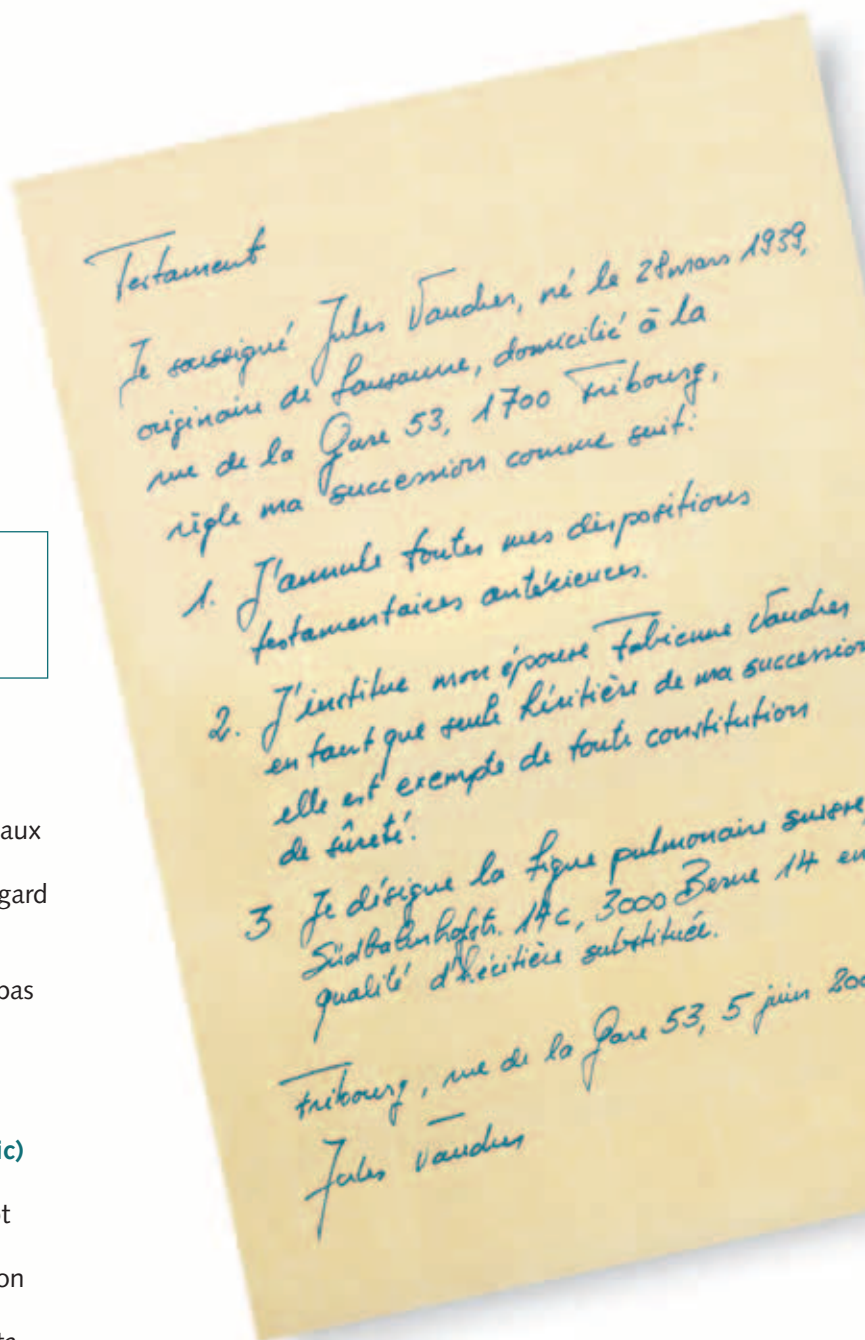 Testament
Je soussigné Jules Vaudres, né le 28 mars 1939,
originaire de Lausanne, domicilié à la
rue de la Gare 53, 1700 Fribourg,
règle ma succession comme suit:
1. J'annule toutes mes dispositions
testamentaires antérieures.
2. J'institue mon épouse Fabienne Vaudres
en tant que seule héritière de ma succession
elle est exempte de toute constitution
de sûreté.
3 Je désigne la Ligue pulmonaire suisse,
Südbahnhofstr. 14c, 3000 Berne 14 en
qualité d'héritière substituée.
Fribourg, rue de la Gare 53, 5 juin 200
Jules Vaudres
aux
gard
pas
ic)
ot
on